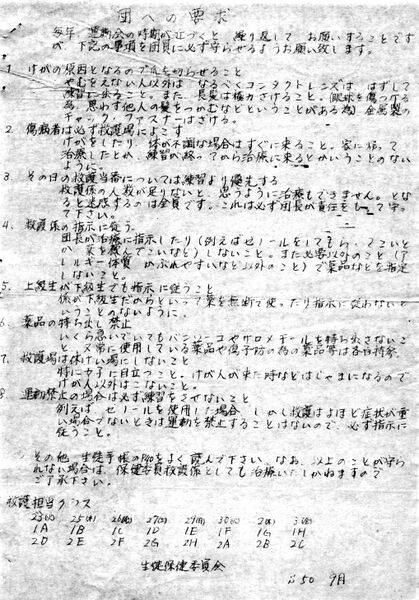 団への要求
毎年 運動会の時期が近づくと 繰り返して お願いすることです
が、下記の事項を団員に必ず守らせるようお願い致します。
1 けがの原因となるので爪を切らせること
やむをえない人以外は なるべくコンタクトレンズは はずして
練習に出ること。また、長爪は極力さけること。(眼球を傷つける
為、思わず他人の髪をつかむなどということがある為) 金属製の
チャック・ファスナーはさける。
2 傷病者は必ず救護場によこす
けがをしたり、体が不調な場合はすぐに来ること。家に帰って
治療したとか、練習が終ってから治療に来るとかいうことのない
ように。
3 その日の救護当番については練習より優先する
救護係の人数が足りないと 思うように治療もできません。とな
ると迷惑するのは全員です。これは必ず団長が責任をもって守っ
て下さい。
4. 救護係の指示に従う
団長が治療に指示したり(例えばゼノールをしてもらってこいと
か 薬を飲んでこいなど)しないこと。また必要以外のこと(ア
レルギー体質 かぶれやすいなど以外のこと)で薬品などを指定
しないこと。
5. 上級生が下級生でも指示に従うこと
係が下級生だからといって薬を無断で使ったり指示に従わないと
いうことのないように。
6. 薬品の持ち出し禁止
いくら急いでいてもバンソーコやサロメチールを持ち出さないこ
と 又常に使用している薬品や傷予防の為の薬品等は各自持参
7 救護場は休けい場にしないこと
特に女子に目立つこと。けが人が来た時などはじゃまになるので
けが人以外はこないこと。
8 運動禁止の場合は必ず練習をさせないこと
例えば ゼノールを使用した場合 しかし救護はよほど症状が重
い場合でないときは運動を禁止することはないので、必ず指示に
従うこと。
その他 生徒手帳のP40をよく読んで下さい。なお、以上のことが守ら
れない場合は、保健委員救護係としても治療いたしかねますので
ご了承下さい。
救護担当クラス
23(火) 25(木) 26(金) 27(土) 29(月) 30(火) 2(木) 3(金)
1A 1B 1C 1D 1E 1F 1G 1H
2D 2E 2F 2G 2H 2A 2B 2C
生徒保健委員会
S50 9月